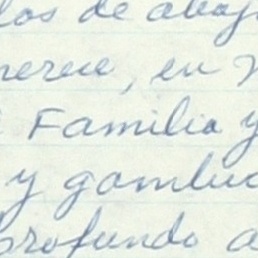 los de abajo
merece, en
Familia y
y gambuc
profundo a